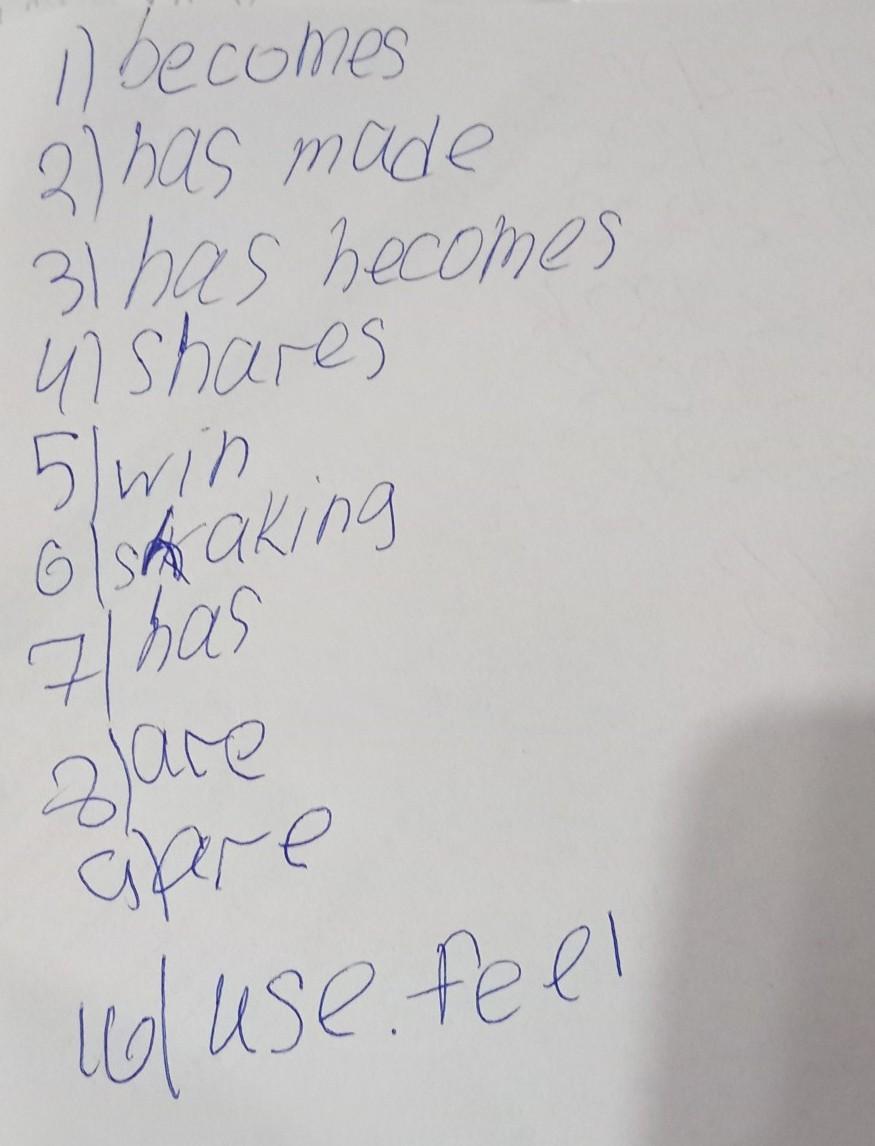 1) becomes
2) has made
3) has becomes
4) shares
5) win
6) straking
7) has
8) are
9) are
10) use. feel